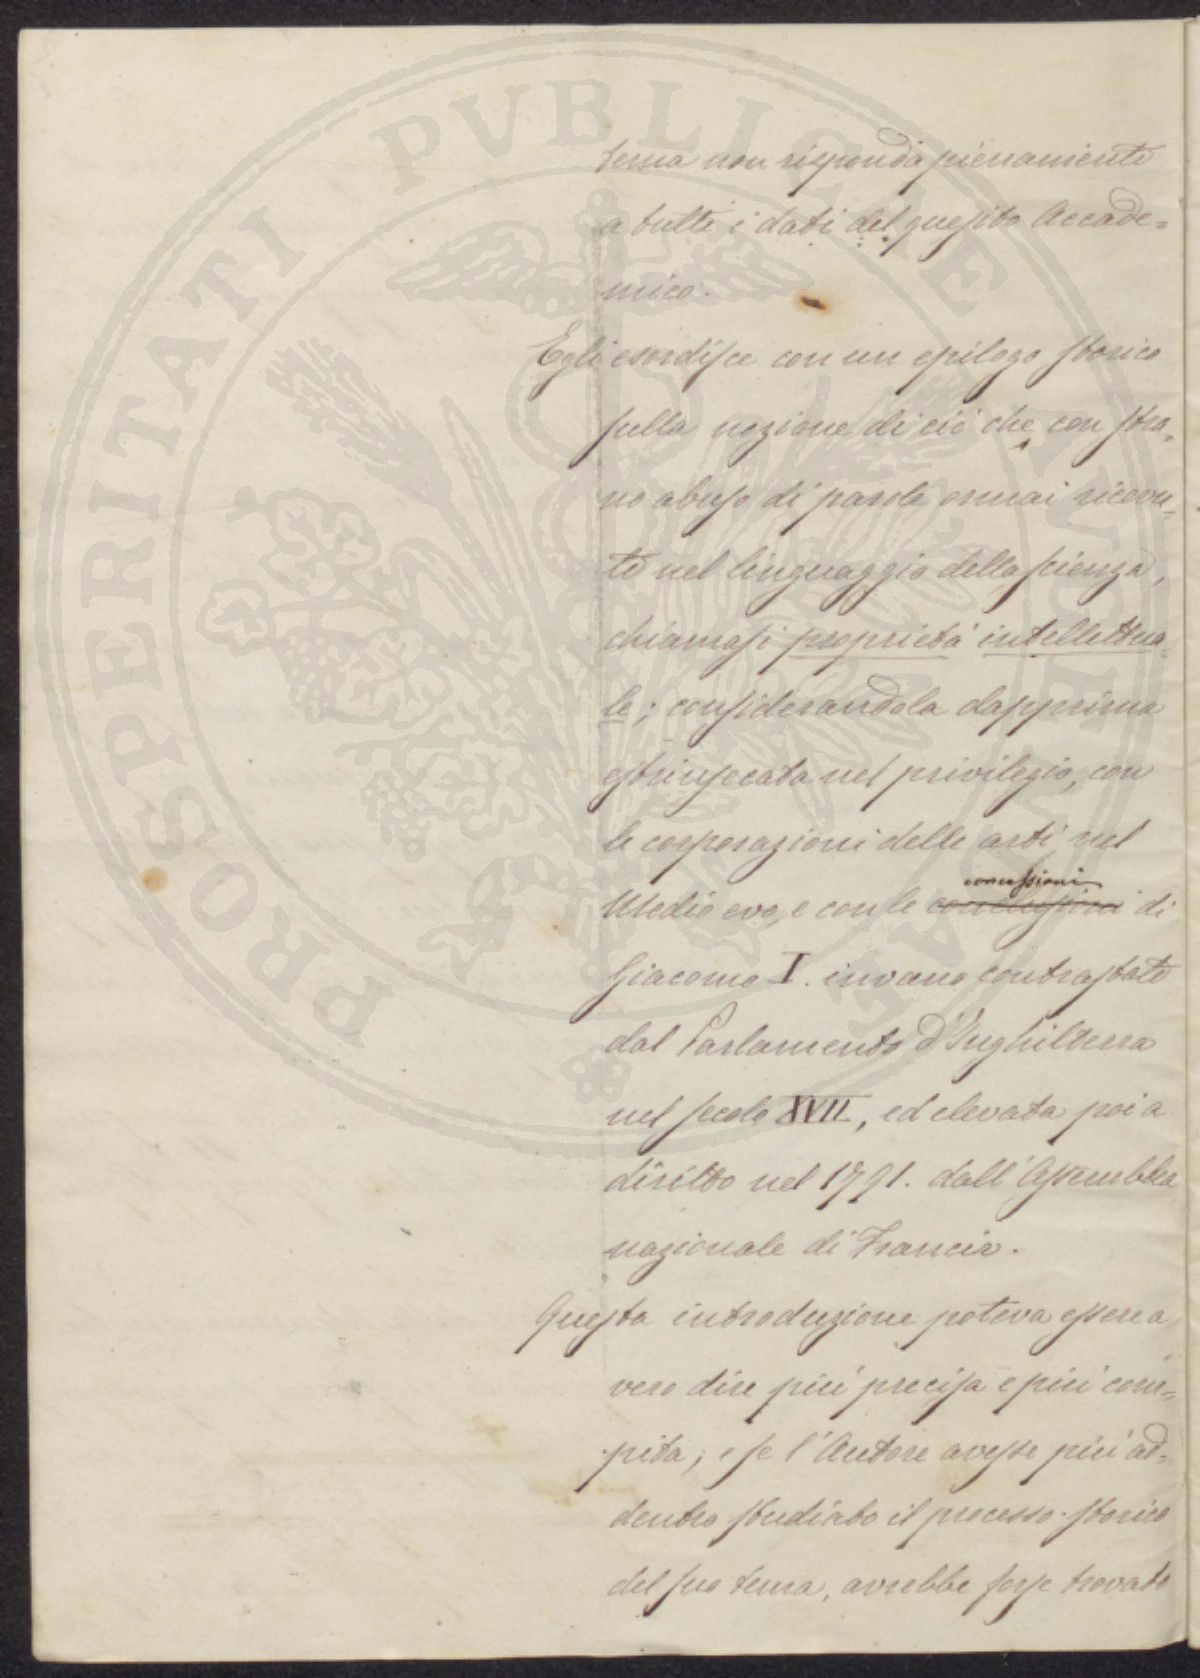 PROSPERITATI PVBLICAE AVGENDAE
tema non risponda pienamente
a tutti i dati del quesito Accade=
mico.
Egli esordisce con un epilogo storico
sulla nozione di ciò che con stra=
no abuso di parole ormai ricevu=
to nel linguaggio della scienza,
chiamasi proprietà intellettua=
le; considerandola dapprima
estrinsecata nel privilegio, con
le corporazioni delle arti nel
Medio evo, e con le conclusioni di
concessioni
Giacomo I. invano contrastate
dal Parlamento d'Inghilterra
nel secolo XVII, ed elevata poi a
diritto nel 1791. dall'Assemblea
nazionale di Francia.
Questa introduzione poteva essere a
vero dire più precisa e più com=
pita; e se l'Autore avesse più ad=
dentro studiato il processo storico
del suo tema, avrebbe forse trovato